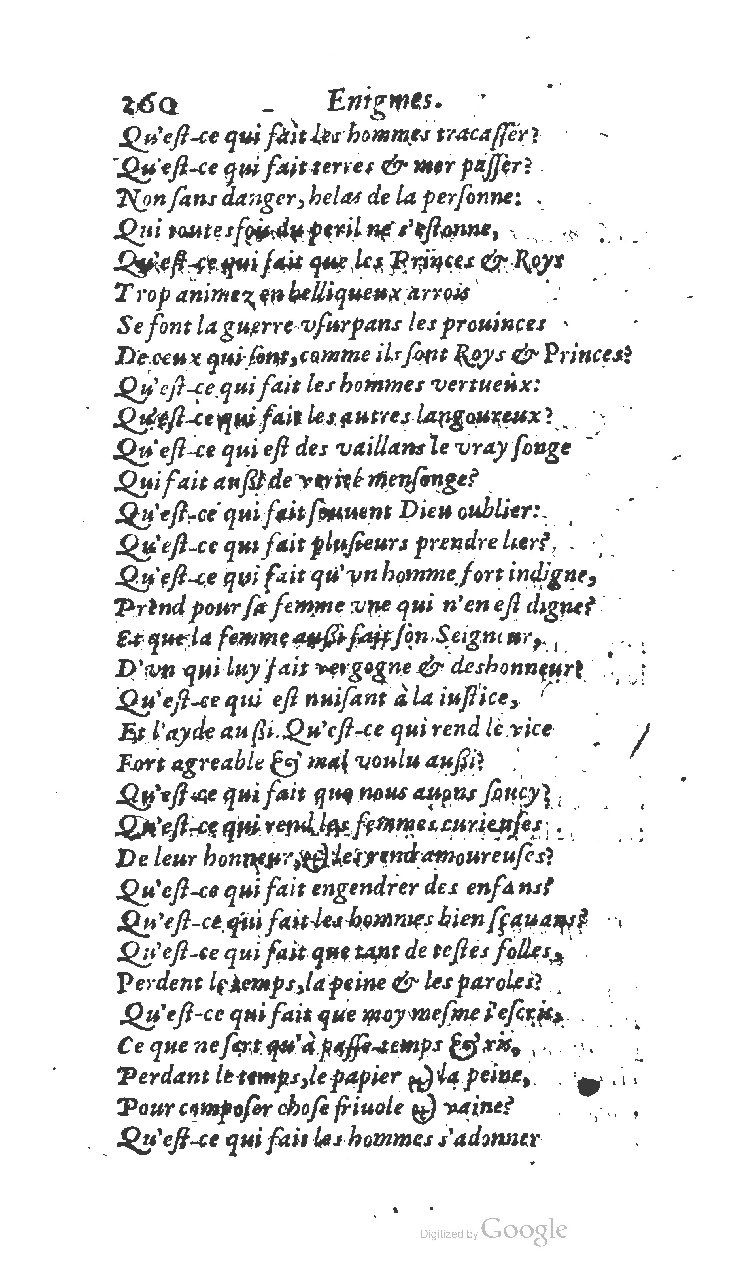 260 Enigmes.
Qu'eſt-ce qui fait les hommes tracaſſer?
Qu'eſt-ce qui fait terres & mer paſſer?
Non ſans danger, helas de la perſonne:
Qui toutesfois du peril ne s'eſtonne,
Qu'eſt-ce qui fait que les Princes & Roys
Trop animez en belliqueux arrois
Se font la guerre vſurpans les prouinces
De ceux qui ſont, comme ils ſont Roys & Princes?
Qu'eſt-ce qui fait les hommes vertueux:
Qu'eſt-ce qui fait les autres langoureux?
Qu'eſt-ce qui eſt des vaillans le vray ſonge
Qui fait außi de verité menſonge?
Qu'eſt-ce qui fait ſouuent Dieu oublier:
Qu'eſt-ce qui fait pluſieurs prendre lier?
Qu'eſt-ce qui fait qu'vn homme fort indigne,
Prend pour ſa femme vne qui n'en eſt digne?
Et que la femme außi fait ſon Seigneur,
D'vn qui luy fait vergogne & deshonneur?
Qu'eſt-ce qui eſt nuiſant à la iuſtice,
Et l'ayde außi. Qu'eſt-ce qui rend le vice
Fort agreable & mal voulu außi?
Qu'eſt-ce qui fait que nous auons ſoucy?
Qu'eſt-ce qui rend les femmes curieuſes
De leur honneur, & les rend amoureuſes?
Qu'eſt-ce qui fait engendrer des enfans?
Qu'eſt-ce qui fait les hommes bien ſçauans?
Qu'eſt-ce qui fait que tant de teſtes folles,
Perdent le temps, la peine & les paroles?
Qu'eſt-ce qui fait que moy meſme i'eſcris,
Ce que ne ſert qu'à paſſe-temps & ris,
Perdant le temps, le papier & la peine,
Pour compoſer choſe friuole & vaine?
Qu'eſt-ce qui fait les hommes s'adonner
Digitized by Google